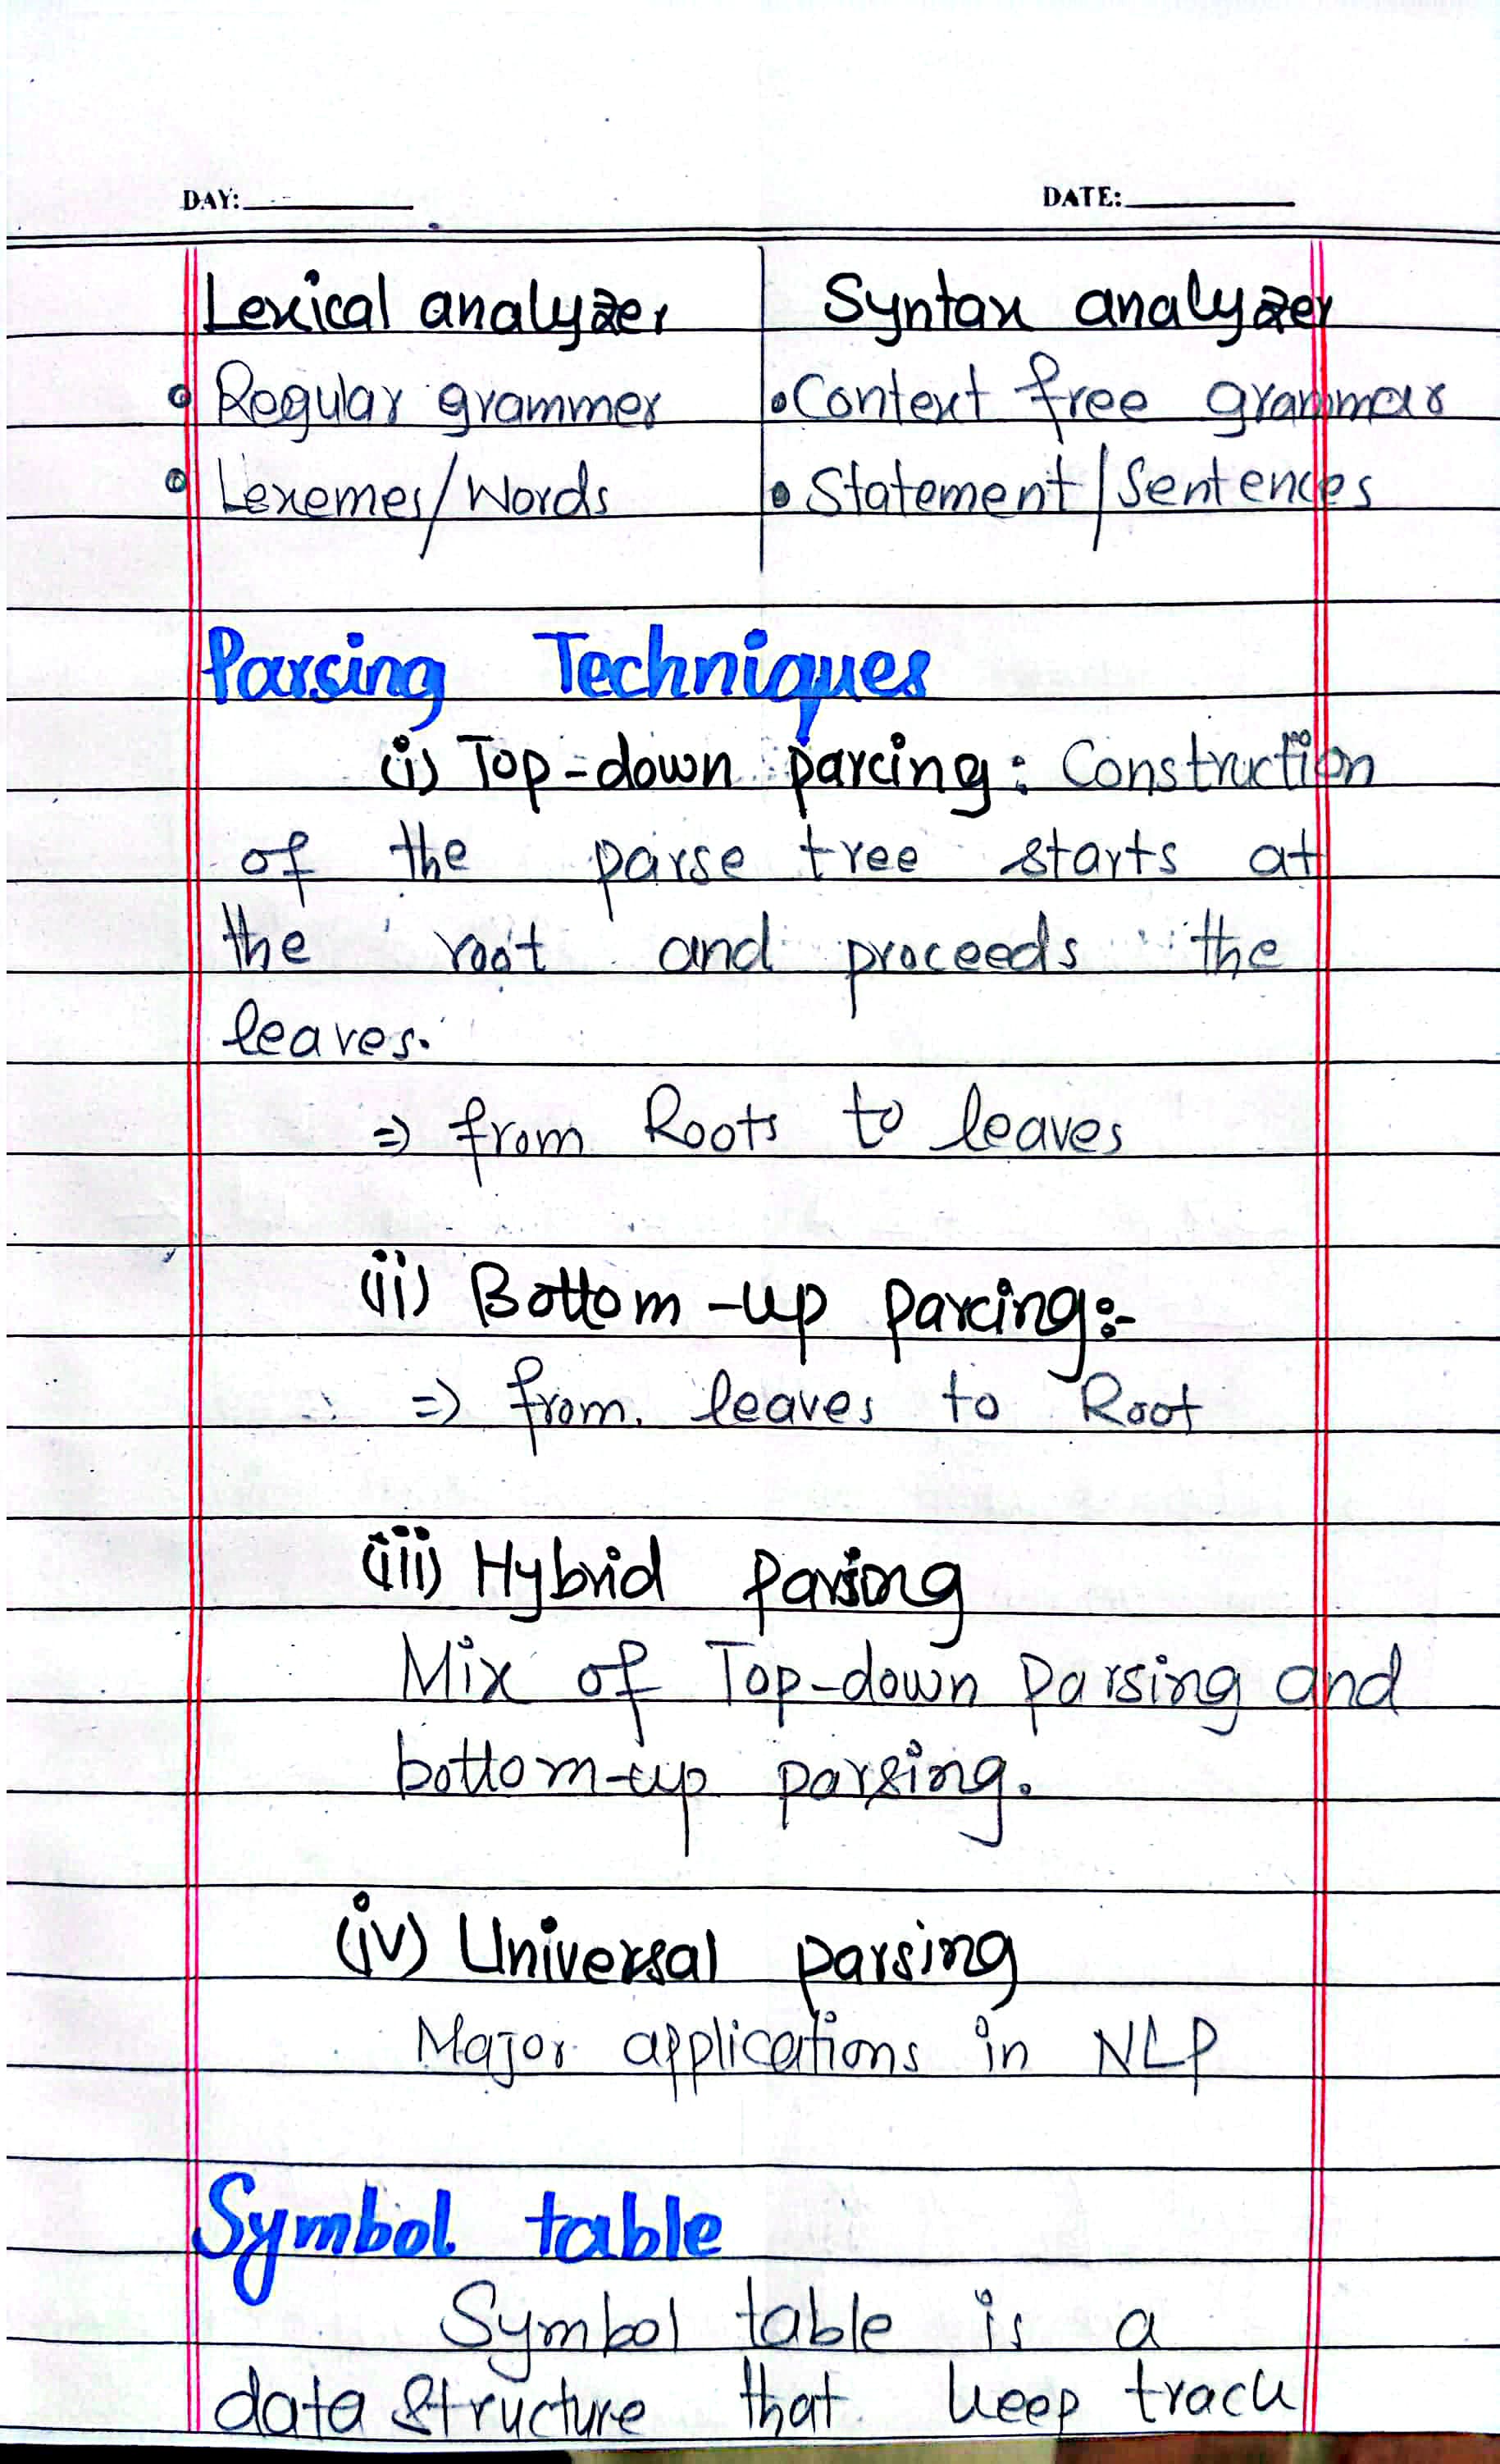 DAY: DATE:
Lexical analyzer Syntax analyzer
Regular grammer Context free grammar
Lexemes/Words Statement/Sentences
Parsing Techniques
(i) Top-down parcing: Construction
of the parse tree starts at
the root and proceeds the
leaves.
=> from Roots to leaves
(ii) Bottom-up parcing:-
=> from leaves to Root
(iii) Hybrid parsing
Mix of Top-down parsing and
bottom-up parsing.
(iv) Universal parsing
Major applications in NLP
Symbol table
Symbol table is a
data structure that keep track